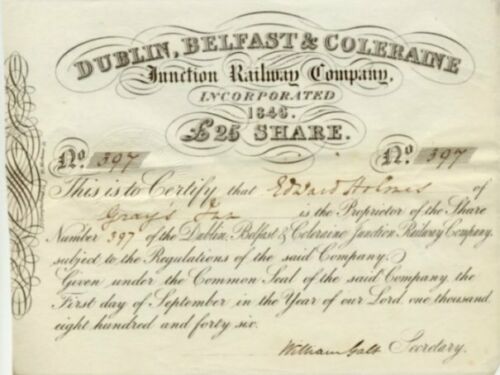 DUBLIN, BELFAST & COLERAINE
Junction Railway Company,
INCORPORATED
1846.
£25 SHARE.
No. 397 No. 397
This is to Certify that Edward Holmes of
Gray's Inn is the Proprietor of the Share
Number 397 of the Dublin, Belfast & Coleraine Junction Railway Company,
subject to the Regulations of the said Company.
Given under the Common Seal of the said Company, the
First day of September in the Year of our Lord, one thousand
eight hundred and forty six.
William Galt Secretary.